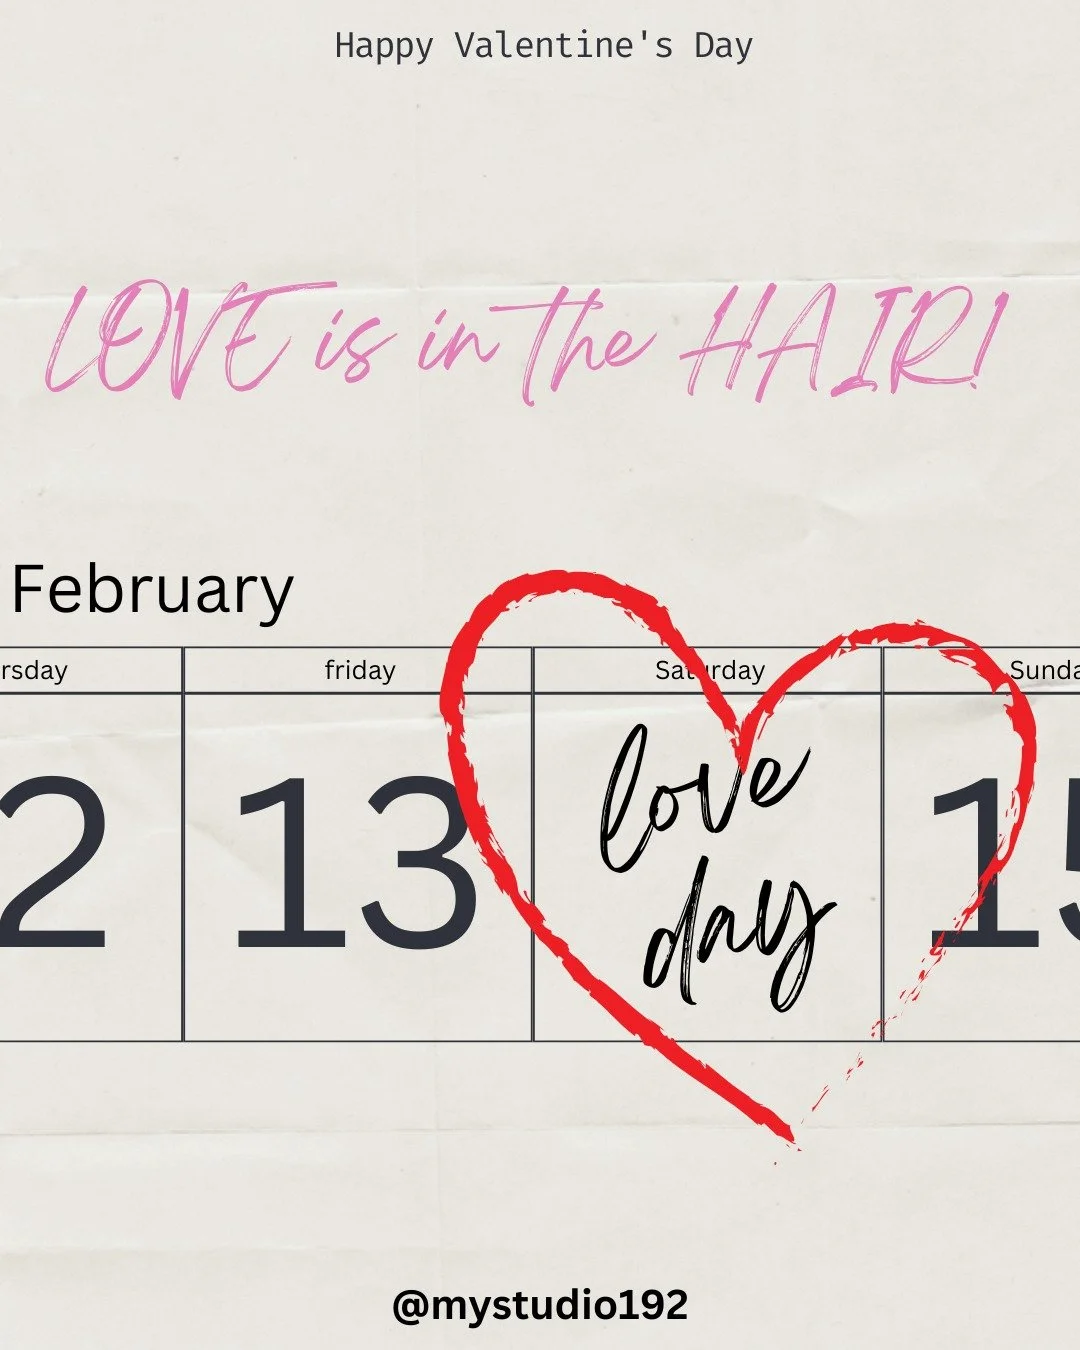 Happy Valentine's Day
LOVE is in the HAIR!
February
rsday friday Saturday Sunda
2 13 love day 15
@mystudio192